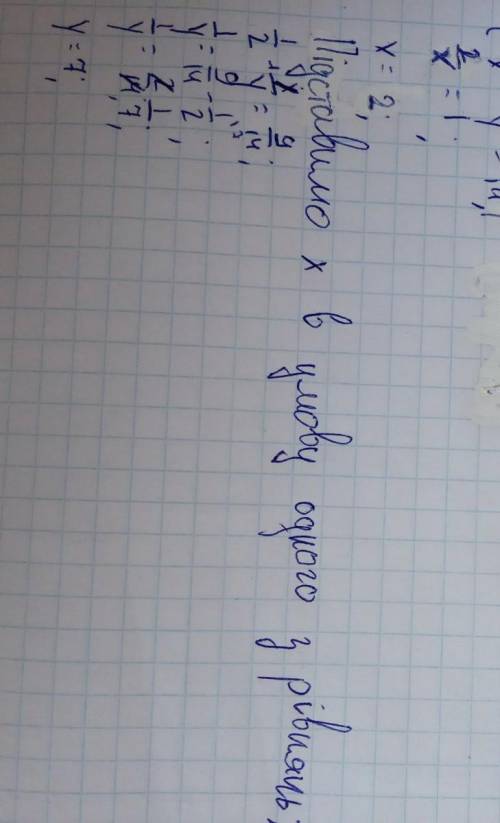 2/x = 1;
x = 2;
Підставимо x в умову одного з рівнянь:
1/2 + 1/y = 9/14;
1/y = 9/14 - 1/2;
1/y = 1/7;
y = 7;